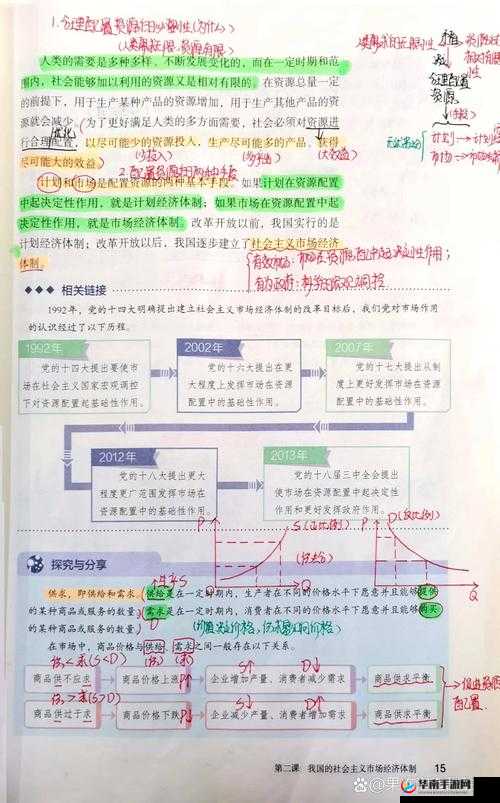 1.合理配置资源的必要性(为什么)
(人类需求无限,资源有限)
人类的需要是多种多样、不断发展变化的,而在一定时期和范
围内,社会能够加以利用的资源又是相对有限的。在资源总量一定
的前提下,用于生产某种产品的资源增加,用于生产其他产品的资
源就会减少。为了更好满足人类的多方面需要,社会必须对资源进
行合理配置,以尽可能少的资源投入,生产尽可能多的产品、获得
尽可能大的效益。
(少投入) (多产出) (大效益)
2.配置资源的两种手段
计划和市场是配置资源的两种基本手段。如果计划在资源配置
中起决定性作用,就是计划经济体制;如果市场在资源配置中起
决定性作用,就是市场经济体制。改革开放以前,我国实行的是
计划经济体制;改革开放以后,我国逐步建立了社会主义市场经济
体制。
合理配置
资源
计划
市场
有效市场:市场在资源配置中起决定性作用;
有为政府:科学的宏观调控
相关链接
1992年,党的十四大明确提出建立社会主义市场经济体制的改革目标后,我们党对市场作用
的认识经过了以下历程。
1992年
党的十四大提出要使市
场在社会主义国家宏观调控
下对资源配置起基础性作用。
2002年
党的十六大提出在更
大程度上发挥市场在资源
配置中的基础性作用。
2007年
党的十七大提出从制
度上更好发挥市场在资源
配置中的基础性作用。
2012年
党的十八大提出更大
程度更广范围发挥市场在
资源配置中的基础性作用。
2013年
党的十八届三中全会提出
使市场在资源配置中起决定性
作用和更好发挥政府作用。
P S(正比例)
Q
P D(反比例)
Q
探究与分享
供求,即供给和需求。供给是在一定时期内,生产者在不同的价格水平下愿意并且能够提供
的某种商品或服务的数量;需求是在一定时期内,消费者在不同的价格水平下愿意并且能够购买
的某种商品或服务的数量。
在市场中,商品价格与供给、需求之间一般存在以下关系。
供<求(S<D)
S↑ D↓
商品供不应求
商品价格上涨
企业增加产量、消费者减少需求
商品供求平衡
供>求(S>D)
S↓ D↑
商品供过于求
商品价格下跌
企业减少产量、消费者增加需求
商品供求平衡
第二课 我国的社会主义市场经济体制 15
华南手游网